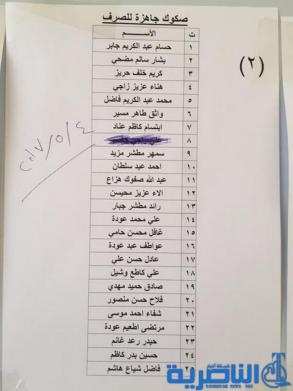 صكوك جاهزة للصرف
(٢)
ت الأســـم
١ حسام عبد الكريم جابر
٢ بشار سالم مضحي
٣ كريم خلف حريز
٤ هناء عزيز زاجي
٥ محمد عبد الكريم فاضل
٦ واثق طاهر مسير
٧ ابتسام كاظم عناد
٨
٩ سمهر مطشر مزيد
١٠ احمد عبد سلطان
١١ عبد الله صفوك هزاع
١٢ الاء عزيز محيسن
١٣ رائد مطشر جبار
١٤ علي محمد عودة
١٥ غافل محسن حامي
١٦ عواطف عبد عودة
١٧ عادل حسن علي
١٨ علي كاطع وشيل
١٩ صادق حميد مهدي
٢٠ فلاح حسن منصور
٢١ شفاء احمد موسى
٢٢ مرتضى اطعيم عودة
٢٣ حيدر رعد غانم
٢٤ حسين بدر كاظم
٢٥ فاضل شياع هاشم
٢٠١٧/٥/٤
الناصرية